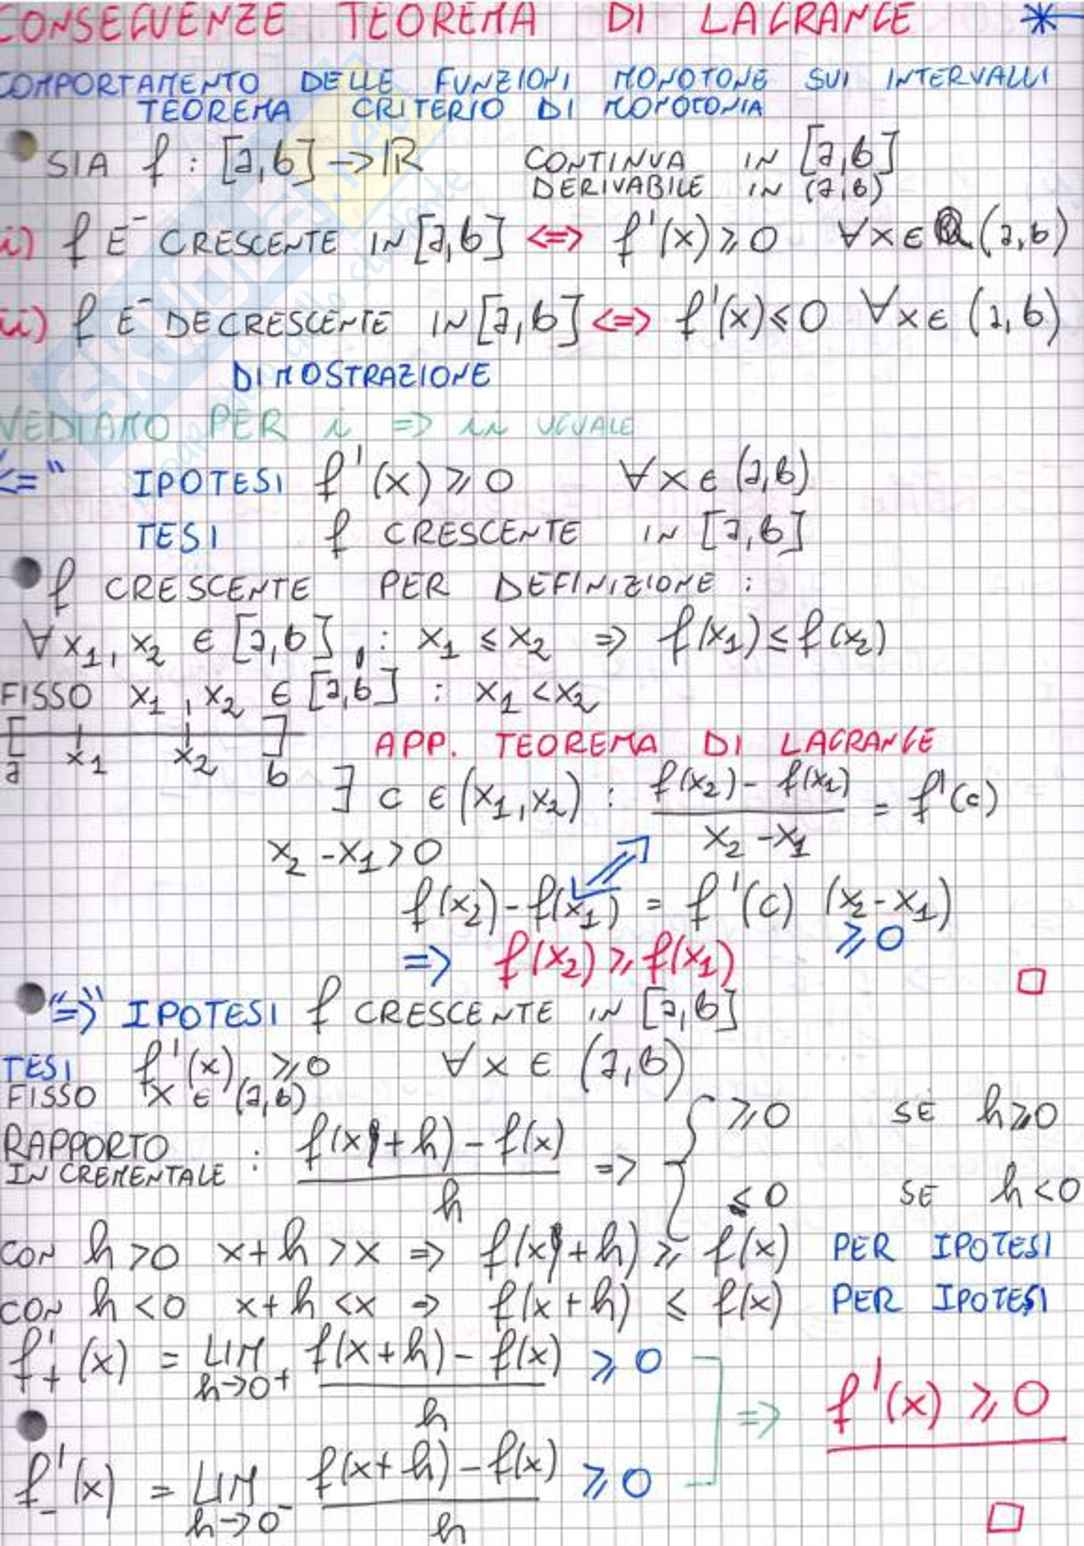 CONSEGUENZE TEOREMA DI LAGRANGE *
COMPORTAMENTO DELLE FUNZIONI MONOTONE SUI INTERVALLI
TEOREMA CRITERIO DI MONOTONIA
SIA f : [a,b] -> ℝ CONTINUA IN [a,b]
DERIVABILE IN (a,b)
i) f E' CRESCENTE IN [a,b] <=> f'(x) ⩾ 0 ∀x ∈ (a,b)
ii) f E' DECRESCENTE IN [a,b] <=> f'(x) ⩽ 0 ∀x ∈ (a,b)
DIMOSTRAZIONE
VEDIAMO PER i => ii UGUALE
"<=" IPOTESI f'(x) ⩾ 0 ∀x ∈ (a,b)
TESI f CRESCENTE IN [a,b]
f CRESCENTE PER DEFINIZIONE :
∀x₁, x₂ ∈ [a,b], : x₁ ⩽ x₂ => f(x₁) ≤ f(x₂)
FISSO x₁, x₂ ∈ [a,b] : x₁ < x₂
[ a x₁ x₂ b ] APP. TEOREMA DI LAGRANGE
∃ c ∈ (x₁,x₂) : (f(x₂) - f(x₁)) / (x₂ - x₁) = f'(c)
x₂ - x₁ > 0
f(x₂) - f(x₁) = f'(c) (x₂ - x₁)
=> f(x₂) ⩾ f(x₁) ⩾ 0
□
"=>" IPOTESI f CRESCENTE IN [a,b]
TESI f'(x) ⩾ 0 ∀x ∈ (a,b)
FISSO x ∈ (a,b)
RAPPORTO INCREMENTALE : (f(x+h) - f(x)) / h => { ⩾ 0 SE h ⩾ 0
≤ 0 SE h < 0
CON h > 0 x+h > x => f(x+h) ⩾ f(x) PER IPOTESI
CON h < 0 x+h < x => f(x+h) ≤ f(x) PER IPOTESI
f'₊(x) = LIM h->0⁺ (f(x+h) - f(x)) / h ⩾ 0
=> f'(x) ⩾ 0
f'₋(x) = LIM h->0⁻ (f(x+h) - f(x)) / h ⩾ 0
□